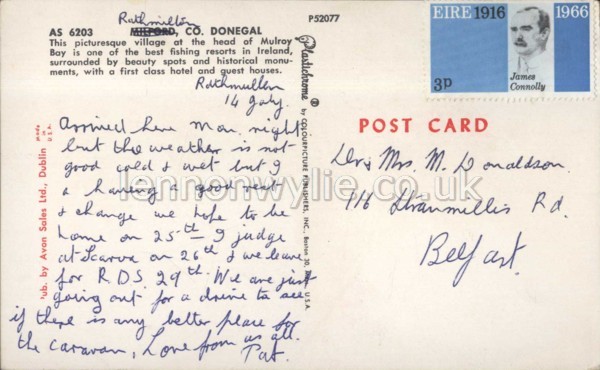 Rathmullen
AS 6203 MILFORD, CO. DONEGAL
This picturesque village at the head of Mulroy
Bay is one of the best fishing resorts in Ireland,
surrounded by beauty spots and historical monu-
ments, with a first class hotel and guest houses.
Rathmullen
14 July.
Arrived here Mon. night
but the weather is not
good cold & wet but I
a having a good rest
& change we hope to be
home on 25th - I judge
at Scarva on 26th & we leave
for R.D.S. 29th. We are just
going out for a drive to see
if there is any better place for
the caravan, Love from us all.
Pat.
Pub. by Avon Sales Ltd., Dublin
Made in U.S.A.
P52077
Plastichrome ® by COLOURPICTURE PUBLISHERS, INC., Boston 30, U.S.A.
EIRE 1916 1966
James
Connolly
3p
POST CARD
Dr & Mrs. M. Donaldson.
116 Stranmillis Rd.
Belfast.
lennonwylie.co.uk